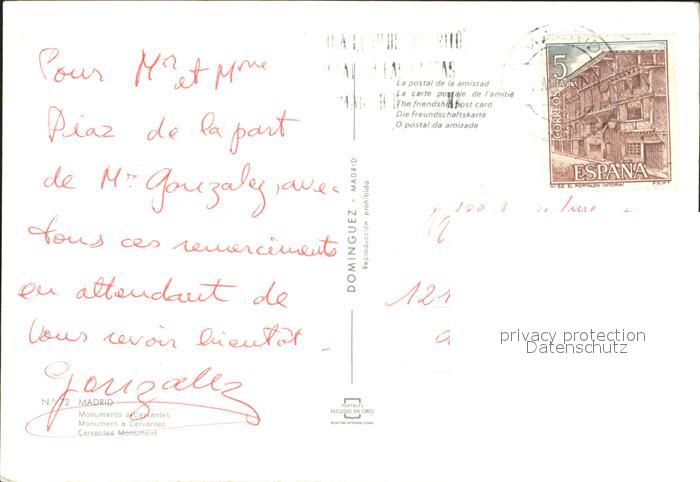 Pour Mr et Mme
Diaz de la part
de Mr Gonzalez, avec
tous ces remerciments
en attendant de
vous revoir bientôt -
Gonzalez
N.° 72 MADRID
Monumento a Cervantes
Monument a Cervantes
Cervantes Monument
DOMINGUEZ - MADRID
Reproducción prohibida
POSTALES
ESCUDO DE ORO
REGISTRO INTERNACIONAL
La postal de la amistad
La carte postale de l'amitié
The friendship post card
Die Freundschaftskarte
O postal da amizade
5
PTAS
CORREOS
ESPAÑA
EL PORTALON (VITORIA)
F.N.M.T.
121
privacy protection
Datenschutz